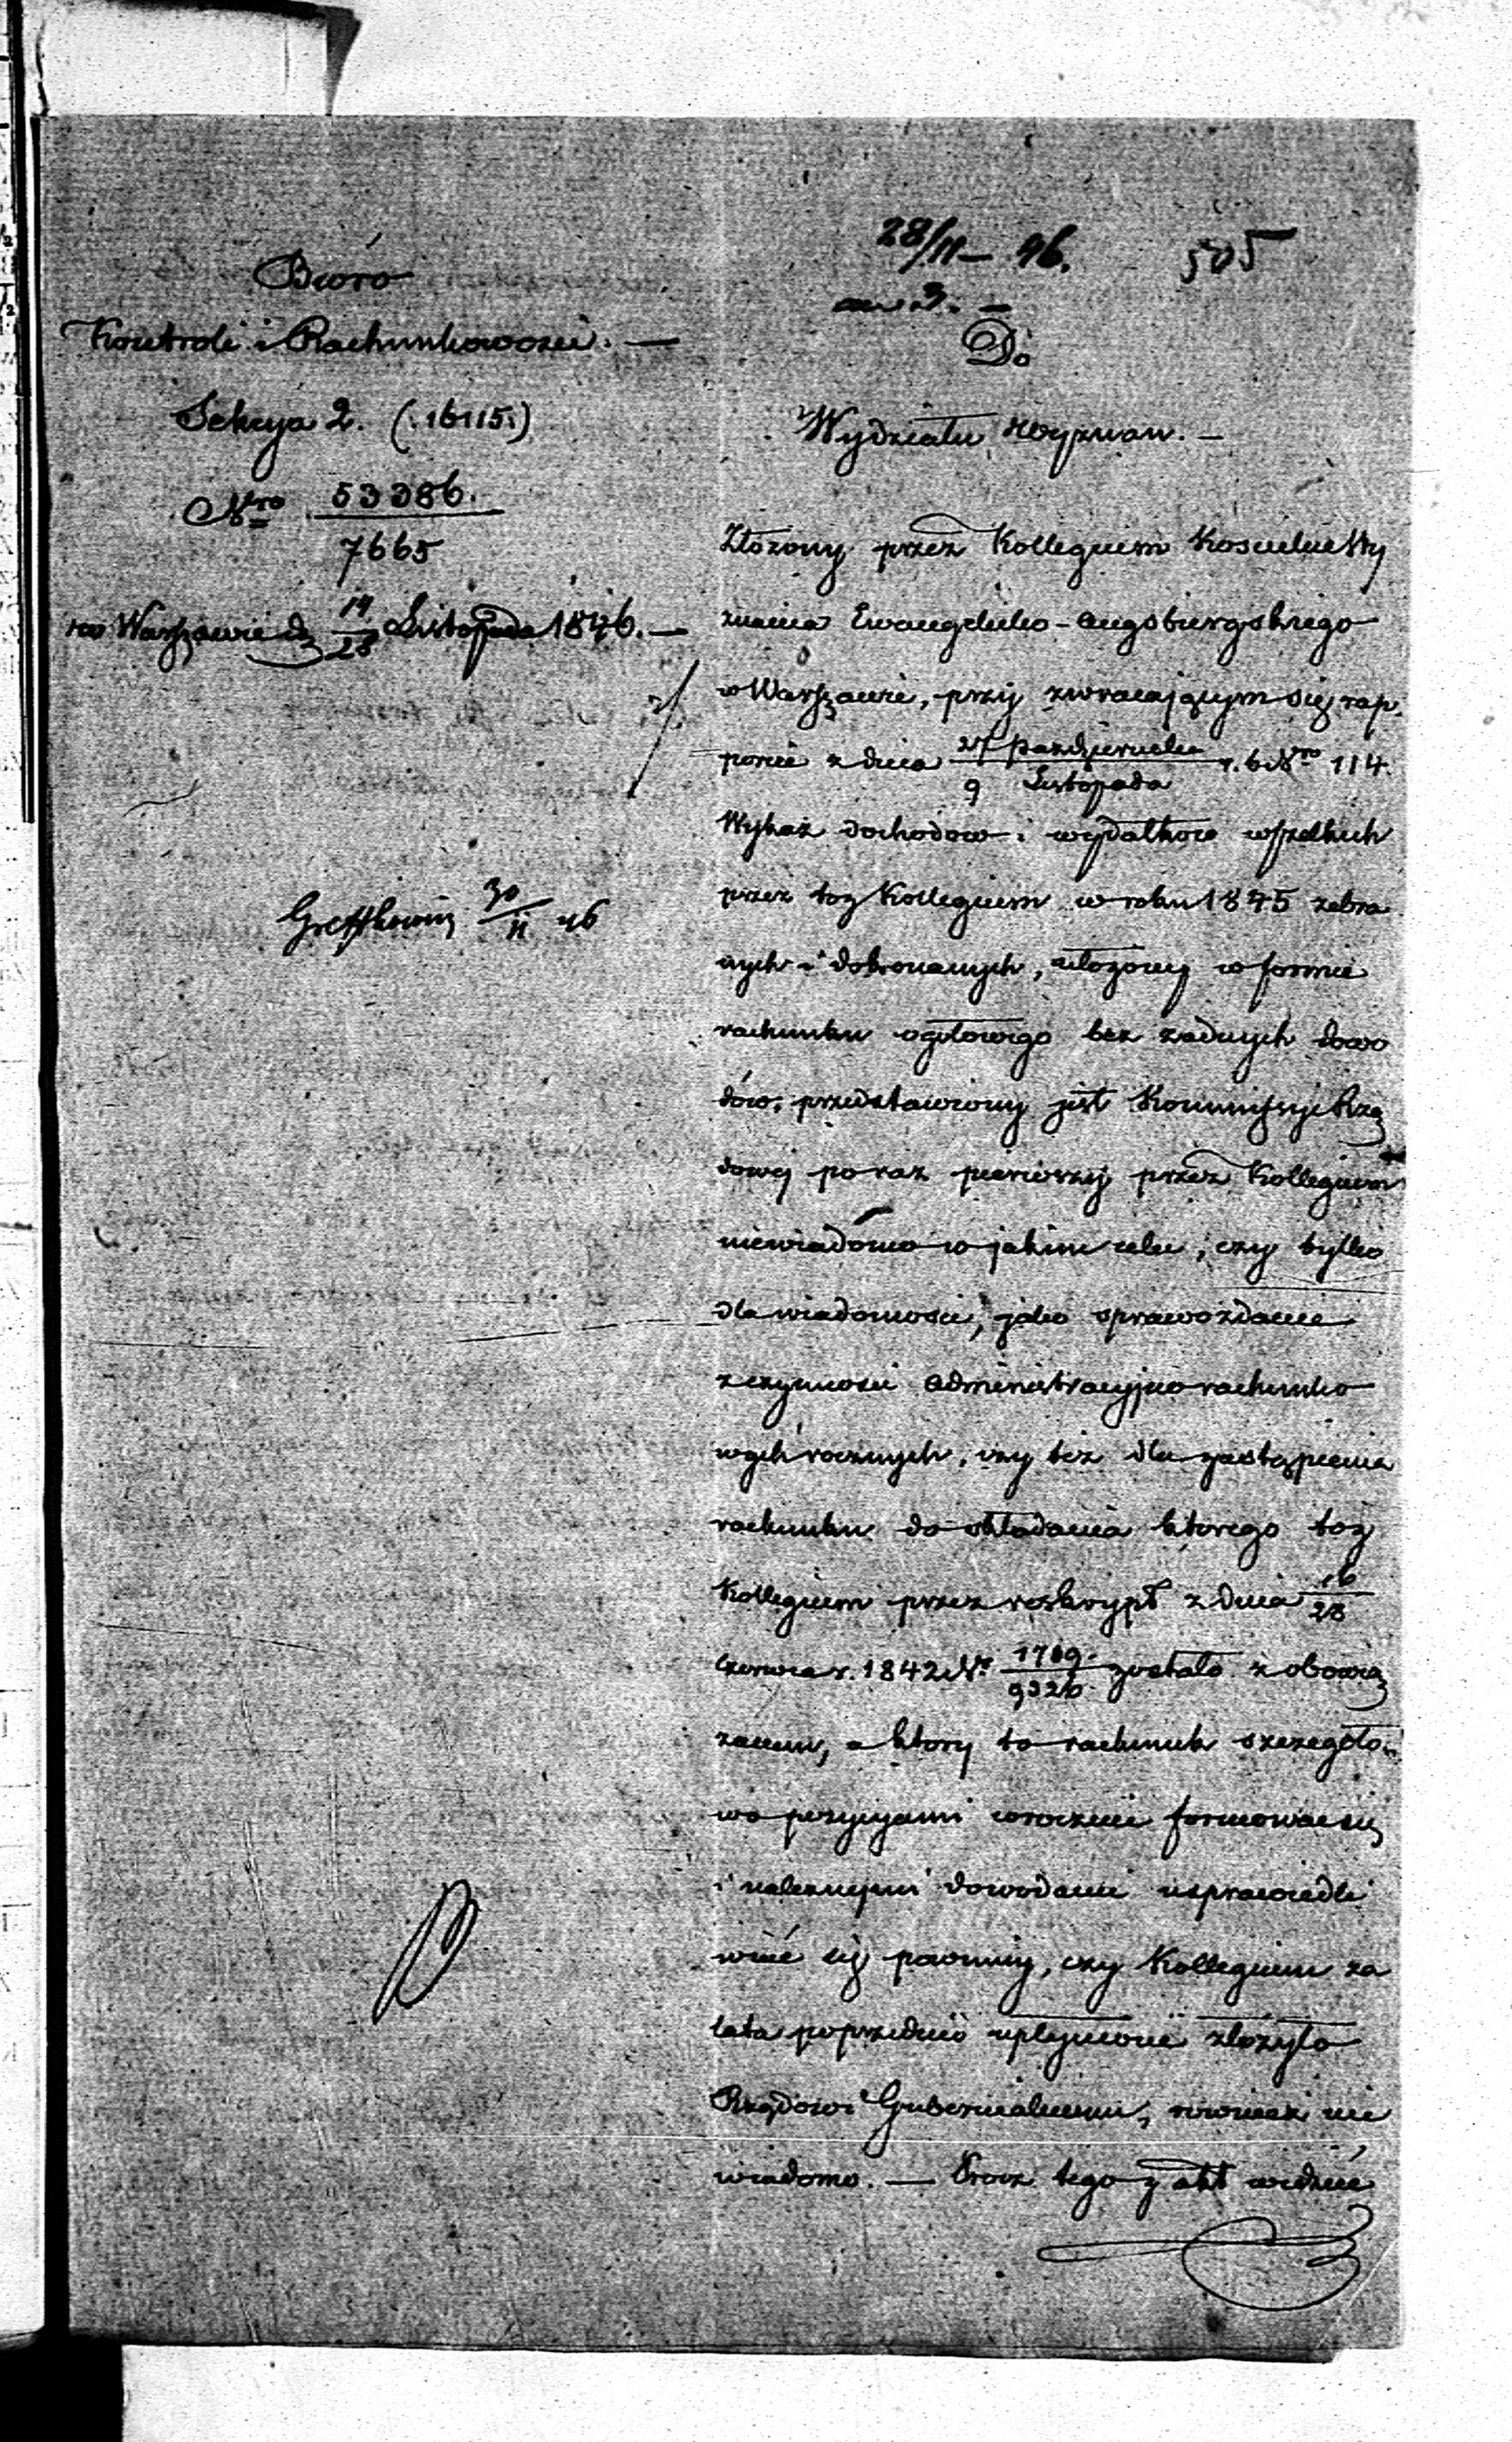 28/11 – 46.
505
3. –
Bióro
Kontroli i Rachunkowości. —
Sekcya 2. (:16115:)
Nro 53386.
7665
w Warszawie d. 14/28 Listopada 1846. —
30/11 46
Do
Wydziału Wyznan. —
Złożony przez Kollegium Koscielne Wy
znania Ewangelicko-Augsburgskiego
w Warszawie, przy zwracaiącym się rap
porcie z dnia 27 Pazdziernika / 9 Listopada r. b. Nro 114.
Wykaz dochodow i wydatkow wszelkich
przez toz Kollegium w roku 1845 zebra
nych i dokonanych, ułozony w formie
rachunku ogołowego bez zadnych dowo
dów, przedstawiony jest Kommissyi Rzą
dowej po raz pierwszy przez Kollegium
niewiadomo w jakim celu, czy tylko
dla wiadomości, jako sprawozdanie
z czynnosci administracyjno rachunko
wych rocznych, czy tez dla zastąpienia
rachunku do składania ktorego toz
Kollegium przez reskrypt z dnia 16/28
Czerwca r. 1842 Nr 1789/9326 zostało zobowią
zanem, a ktory to rachunek szczegóło
wo pozycyami corocznie formować się
i naleznemi dowodami usprawiedli
wiać się powinny, czy Kollegium za
lata poprzednio upłynione złożyło
Rządowi Gubernialnemu, rowniez nie
wiadomo. — Procz tego z akt widzieć